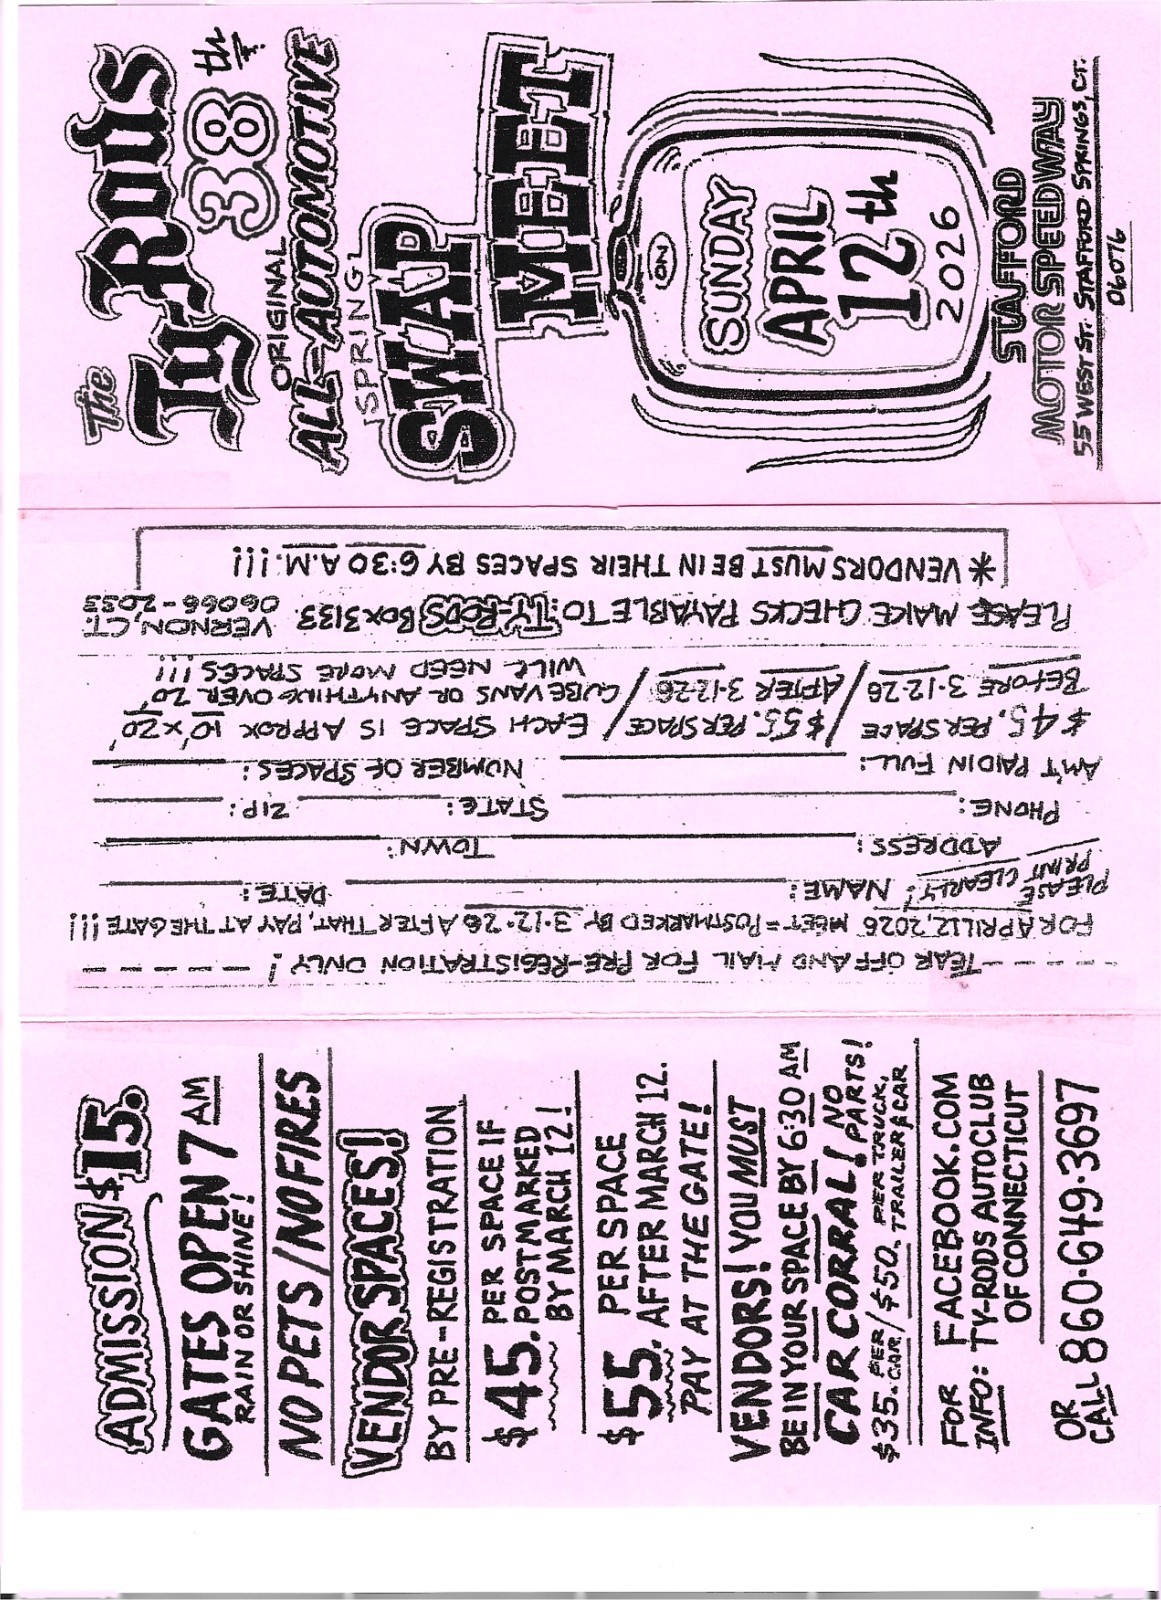 The
Ty-Rods
38th
ORIGINAL
ALL-AUTOMOTIVE
SPRING
SWAP
MEET
ON
SUNDAY
APRIL
12th
2026
STAFFORD
MOTOR SPEEDWAY
55 WEST ST. STAFFORD SPRINGS, CT.
06076
---- TEAR OFF AND MAIL FOR PRE-REGISTRATION ONLY! ----
FOR APRIL 12, 2026 MEET = POSTMARKED BY 3-12-26 AFTER THAT, PAY AT THE GATE!!!
PLEASE PRINT CLEARLY! NAME: DATE:
ADDRESS: TOWN:
PHONE: STATE: ZIP:
AM'T PAID IN FULL: NUMBER OF SPACES:
$45. PER SPACE / $55. PER SPACE / EACH SPACE IS APPROX 10' X 20'
BEFORE 3-12-26 / AFTER 3-12-26 / CUBE VANS OR ANYTHING OVER 20'
WILL NEED MORE SPACES!!!
PLEASE MAKE CHECKS PAYABLE TO: TY-RODS BOX 3133 VERNON, CT.
06066-2033
* VENDORS MUST BE IN THEIR SPACES BY 6:30 A.M.!!!
ADMISSION $15.
GATES OPEN 7 AM
RAIN OR SHINE!
NO PETS / NO FIRES
VENDOR SPACES!
BY PRE-REGISTRATION
$45. PER SPACE IF
POSTMARKED
BY MARCH 12!
$55. PER SPACE
AFTER MARCH 12.
PAY AT THE GATE!
VENDORS! YOU MUST
BE IN YOUR SPACE BY 6:30 AM
CAR CORRAL! NO PARTS!
$35. PER CAR / $50. PER TRUCK, TRAILER & CAR
FOR INFO: FACEBOOK.COM
TY-RODS AUTOCLUB
OF CONNECTICUT
OR CALL 860-649-3697